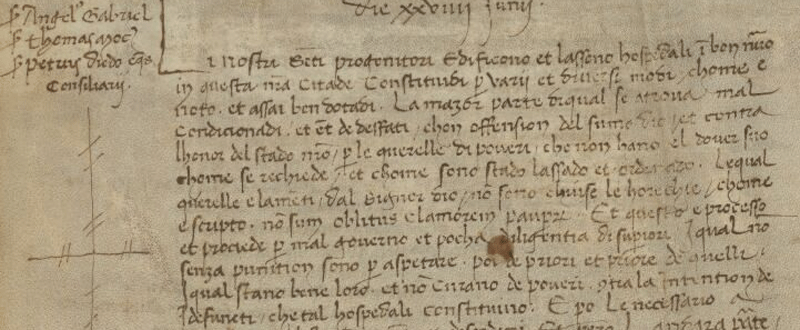 Die xxviiij Junij.
ꝑ Angelꝰ Gabriel
ꝑ thomas moc̃
ꝑ petrus diedo Eq̃s
Consiliarij.
I nostri Sc̃ti progenitori Edificono et lassono hospedali ĩ bon nũo
in questa nr̃a Citade Constituidi ꝑ varij et diversi modi, chome e
noto. et assai ben dotadi. La mazor parte di qual se atrova mal
Condicionadi. et et̃ de desfati, chon offension del sumo dio, et contra
lhonor del stado nr̃o, ꝑ le querelle di poveri, che non hano el dover suo
chome se rechiede, et chome sono stado lassado et ordenado. Lequal
querelle e lameti, dal Signor dio, nõ sono chiuse le horechie, chome
e scripto. nõ sum oblitus clamorem paupꝝ. Et questo e processo
et prociede ꝑ mal governo et pocha diligentia di supiori. I qual nõ
senza punition sono ꝑ aspetare. poi de priori et priore de quelli,
I qual stano bene loro. et nõ Curano de poveri. 9tra la Intention de
I defuncti, che tal hospedali constituino. E po Le necessario a